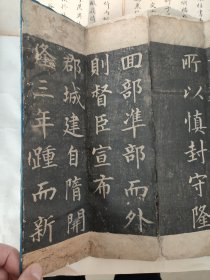 所以慎封守隆
回部準部而外
則督臣宣布
郡城建自隋開
三年踵而新